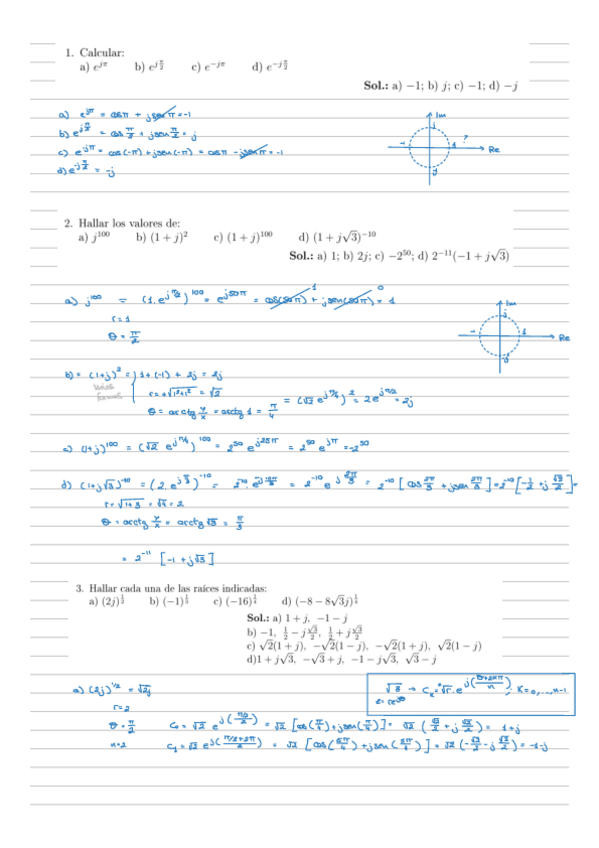 1. Calcular:
a) e^{jπ} b) e^{j\frac{π}{2}} c) e^{-jπ} d) e^{-j\frac{π}{2}}
Sol.: a) −1; b) j; c) −1; d) −j
a) e^{jπ} = cosπ + jsenπ = -1
b) e^{j\frac{π}{2}} = cos \frac{π}{2} + jsen \frac{π}{2} = j
c) e^{-jπ} = cos(-π) + jsen(-π) = cosπ - jsenπ = -1
d) e^{-j\frac{π}{2}} = -j
Im
j
-1 1 ? Re
-j
2. Hallar los valores de:
a) j^{100} b) (1 + j)^2 c) (1 + j)^{100} d) (1 + j√3)^{−10}
Sol.: a) 1; b) 2j; c) −2^{50}; d) 2^{−11}(−1 + j√3)
a) j^{100} = (1.e^{jπ/2})^{100} = e^{j50π} = cos(50π) + jsen(50π) = 1
1 0
r=1
θ = \frac{π}{2}
Im
j
-1 1 Re
-j
b) = (1+j)^2 = 1+(-1) + 2j = 2j
Varias formas
r = +√(1^2+1^2) = √2
θ = arctg \frac{y}{x} = arctg 1 = \frac{π}{4} = (√2 e^{jπ/4})^2 = 2e^{jπ/2} = 2j
c) (1+j)^{100} = (√2 e^{jπ/4})^{100} = 2^{50} e^{j25π} = 2^{50} e^{jπ} = -2^{50}
d) (1+j√3)^{-10} = (2.e^{j\frac{π}{3}})^{-10} = 2^{-10}.e^{-j\frac{10π}{3}} = 2^{-10} e^{j\frac{2π}{3}} = 2^{-10} [cos \frac{2π}{3} + jsen \frac{2π}{3}] = 2^{-10} [-\frac{1}{2} + j\frac{√3}{2}] =
r = √(1+3) = √4 = 2
θ = arctg \frac{y}{x} = arctg √3 = \frac{π}{3}
= 2^{-11} [-1 + j√3]
3. Hallar cada una de las raíces indicadas:
a) (2j)^{\frac{1}{2}} b) (−1)^{\frac{1}{3}} c) (−16)^{\frac{1}{4}} d) (−8 − 8√3j)^{\frac{1}{4}}
Sol.: a) 1 + j, −1 − j
b) −1, \frac{1}{2} − j\frac{√3}{2}, \frac{1}{2} + j\frac{√3}{2}
c) √2(1 + j), −√2(1 − j), −√2(1 + j), √2(1 − j)
d)1 + j√3, −√3 + j, −1 − j√3, √3 − j
a) (2j)^{1/2} = √2j
→ C_k = \sqrt[n]{r}.e^{j(\frac{θ+2kπ}{n})} ; k=0,...,n-1
r=2
θ = \frac{π}{2} C_0 = √2 e^{j(\frac{π/2}{2})} = √2 [cos(\frac{π}{4}) + jsen(\frac{π}{4})] = √2 (\frac{√2}{2} + j\frac{√2}{2}) = 1+j
n=2 C_1 = √2 e^{j(\frac{π/2+2π}{2})} = √2 [cos(\frac{5π}{4}) + jsen(\frac{5π}{4})] = √2 (-\frac{√2}{2} - j\frac{√2}{2}) = -1-j